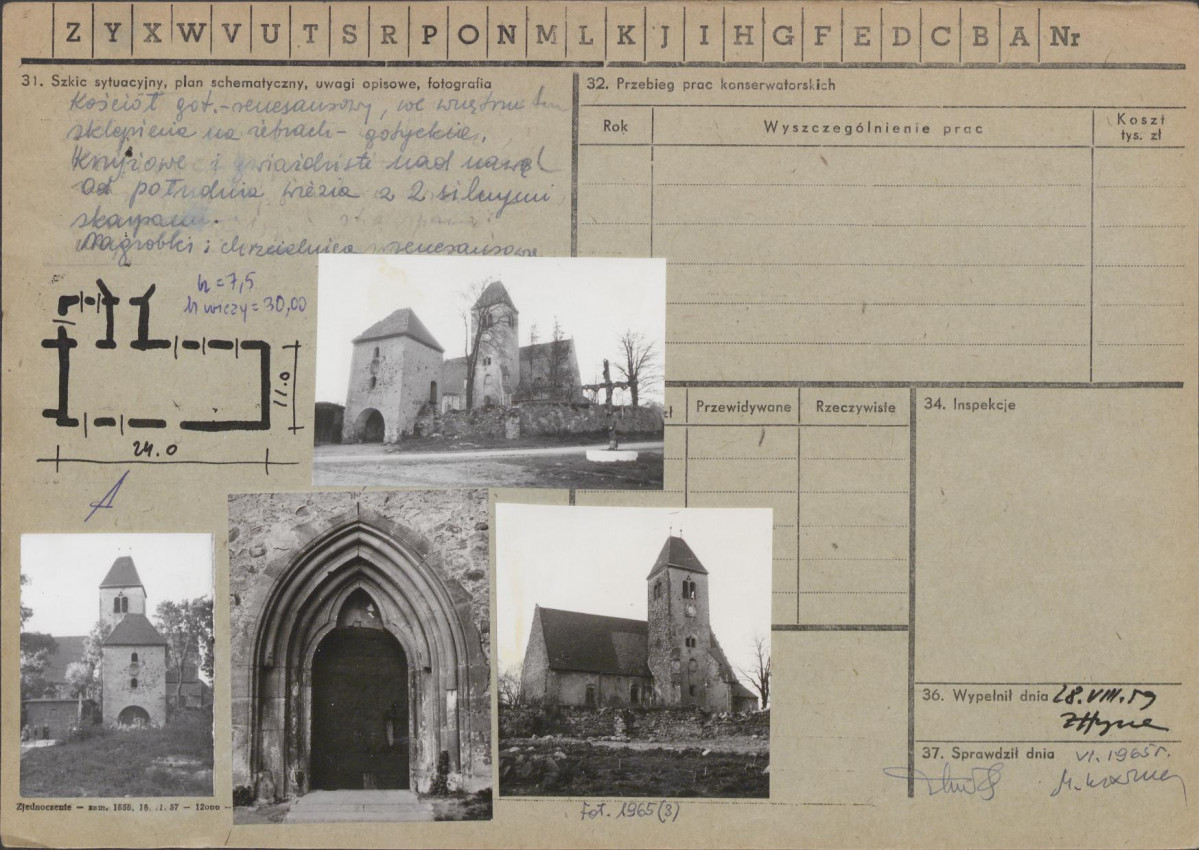 Z Y X W V U T S R P O N M L K J I H G F E D C B A Nr
31. Szkic sytuacyjny, plan schematyczny, uwagi opisowe, fotografia
Kościół got.-renesansowy, we wnętrzu
sklepienia na żebrach - gotyckie,
Krzyżowe i gwiaździste nad nawą
od południa wieża z 2 silnymi
skarpami.
Nagrobki i chrzcielnica renesansowe
h = 7,5
h wieży = 30,00
11.0
24.0
A
32. Przebieg prac konserwatorskich
Rok
Wyszczególnienie prac
Koszt
tys. zł
Przewidywane
Rzeczywiste
34. Inspekcje
36. Wypełnił dnia 28.VIII.59
37. Sprawdził dnia VI.1965 r.
Zjednoczenie – zam.
Fot. 1965 (3)